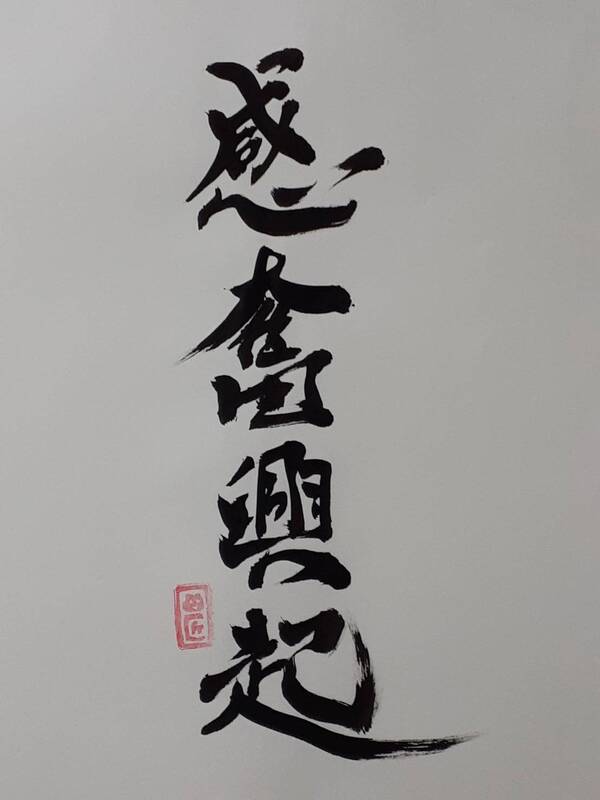 感奮興起